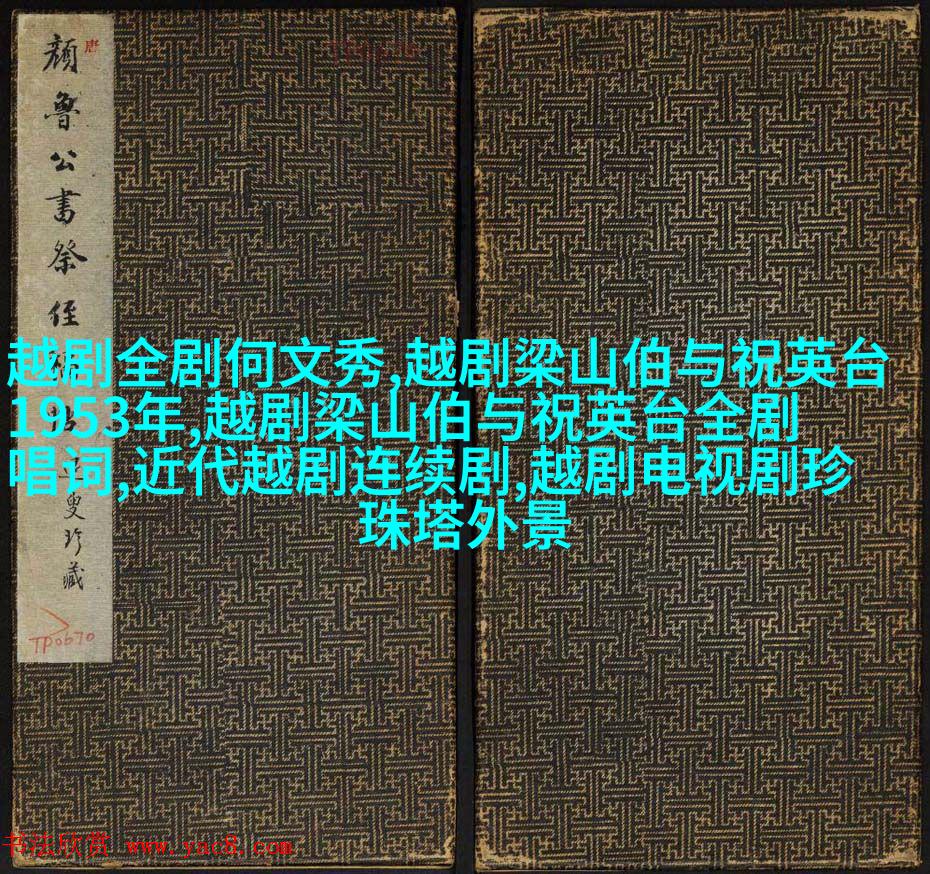 越剧全剧何文秀,越剧梁山伯与祝英台
1953年,越剧梁山伯与祝英台全剧
唱词,近代越剧连续剧,越剧电视剧珍
珠塔外景
唐
颜鲁公书祭侄
叟珍藏
TP0670
书法欣赏 www.yac8.com